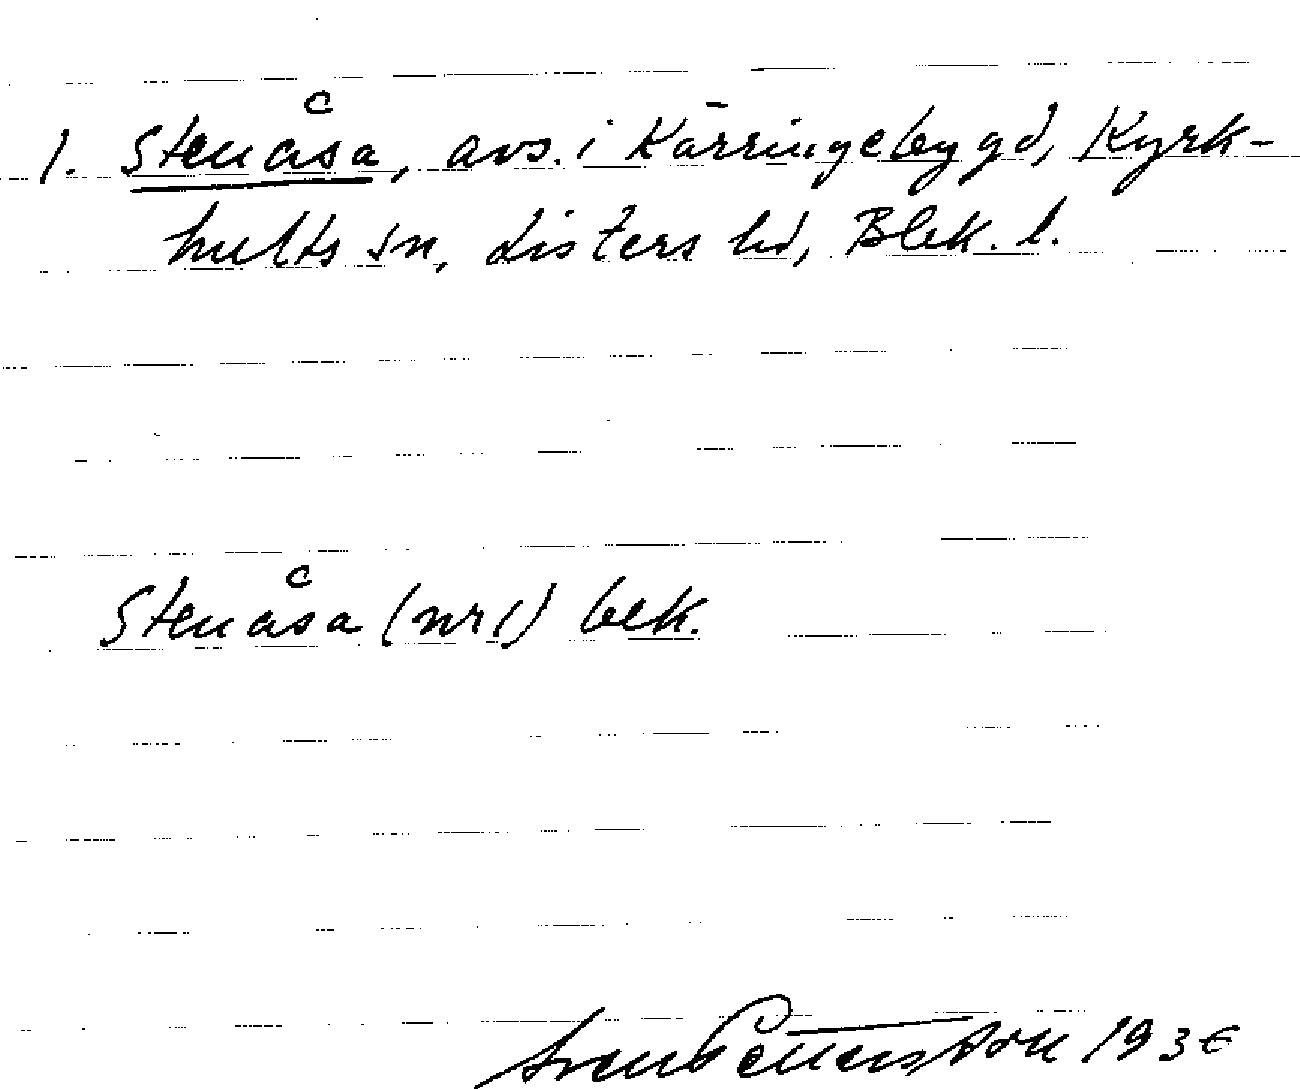 1. Stenåsa, avs. i Kärringebygd, Kyrk-
hults sn, Listers hd, Blek. l.
Stenåsa (nr 1) bek.
Sven Petterson 1936